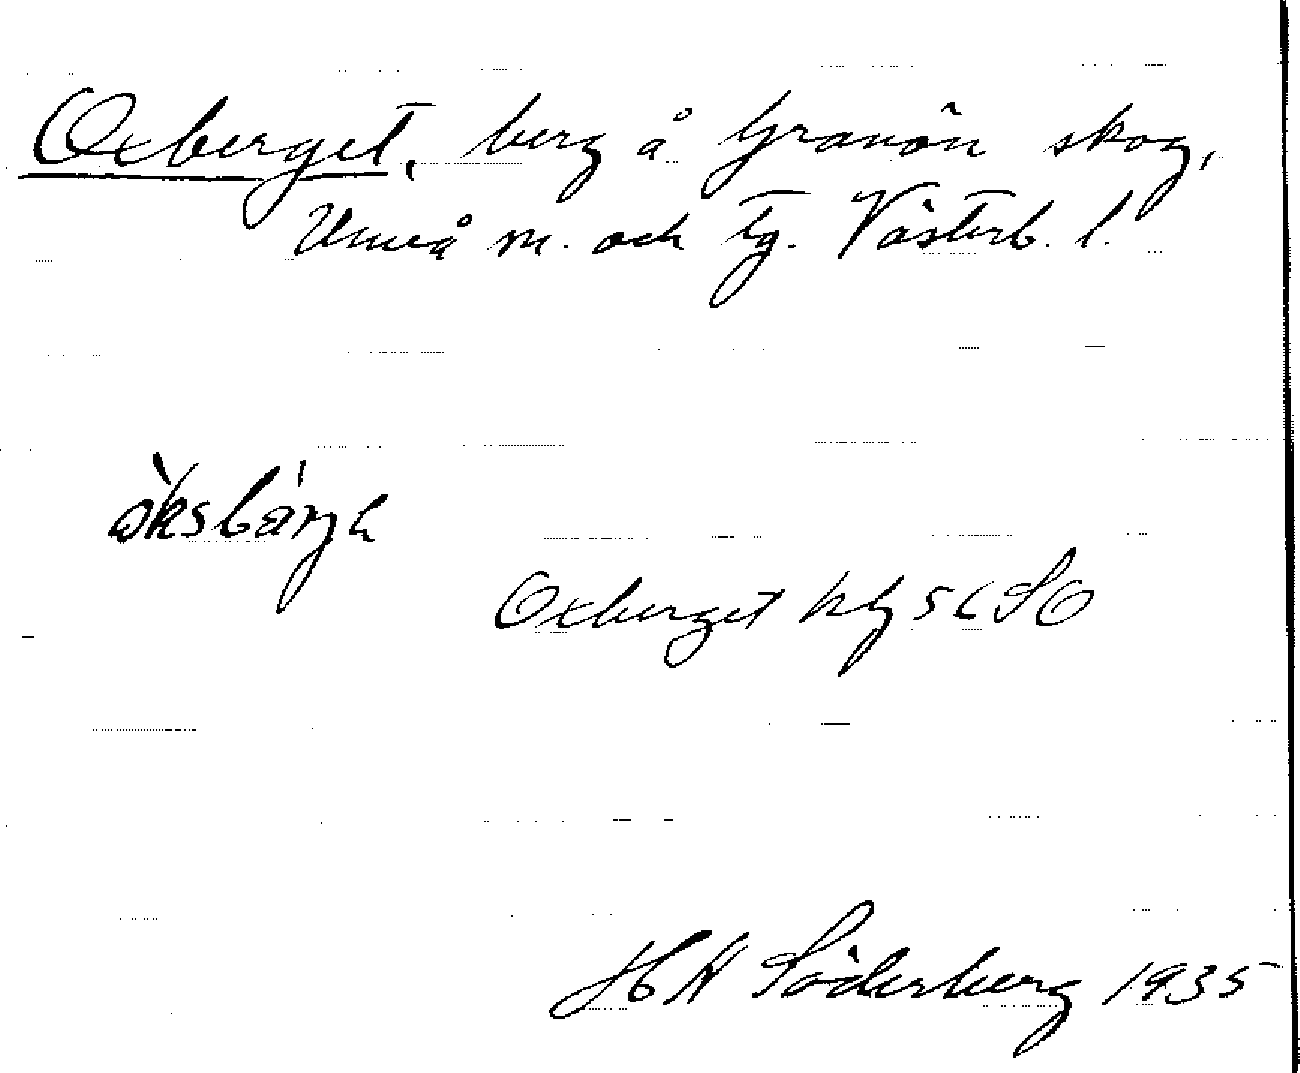 Oxberget, berg å Granön skog,
Umeå m. och tg. Västerb. l.
Oxberget kbl 56 SO
H N Söderberg 1935